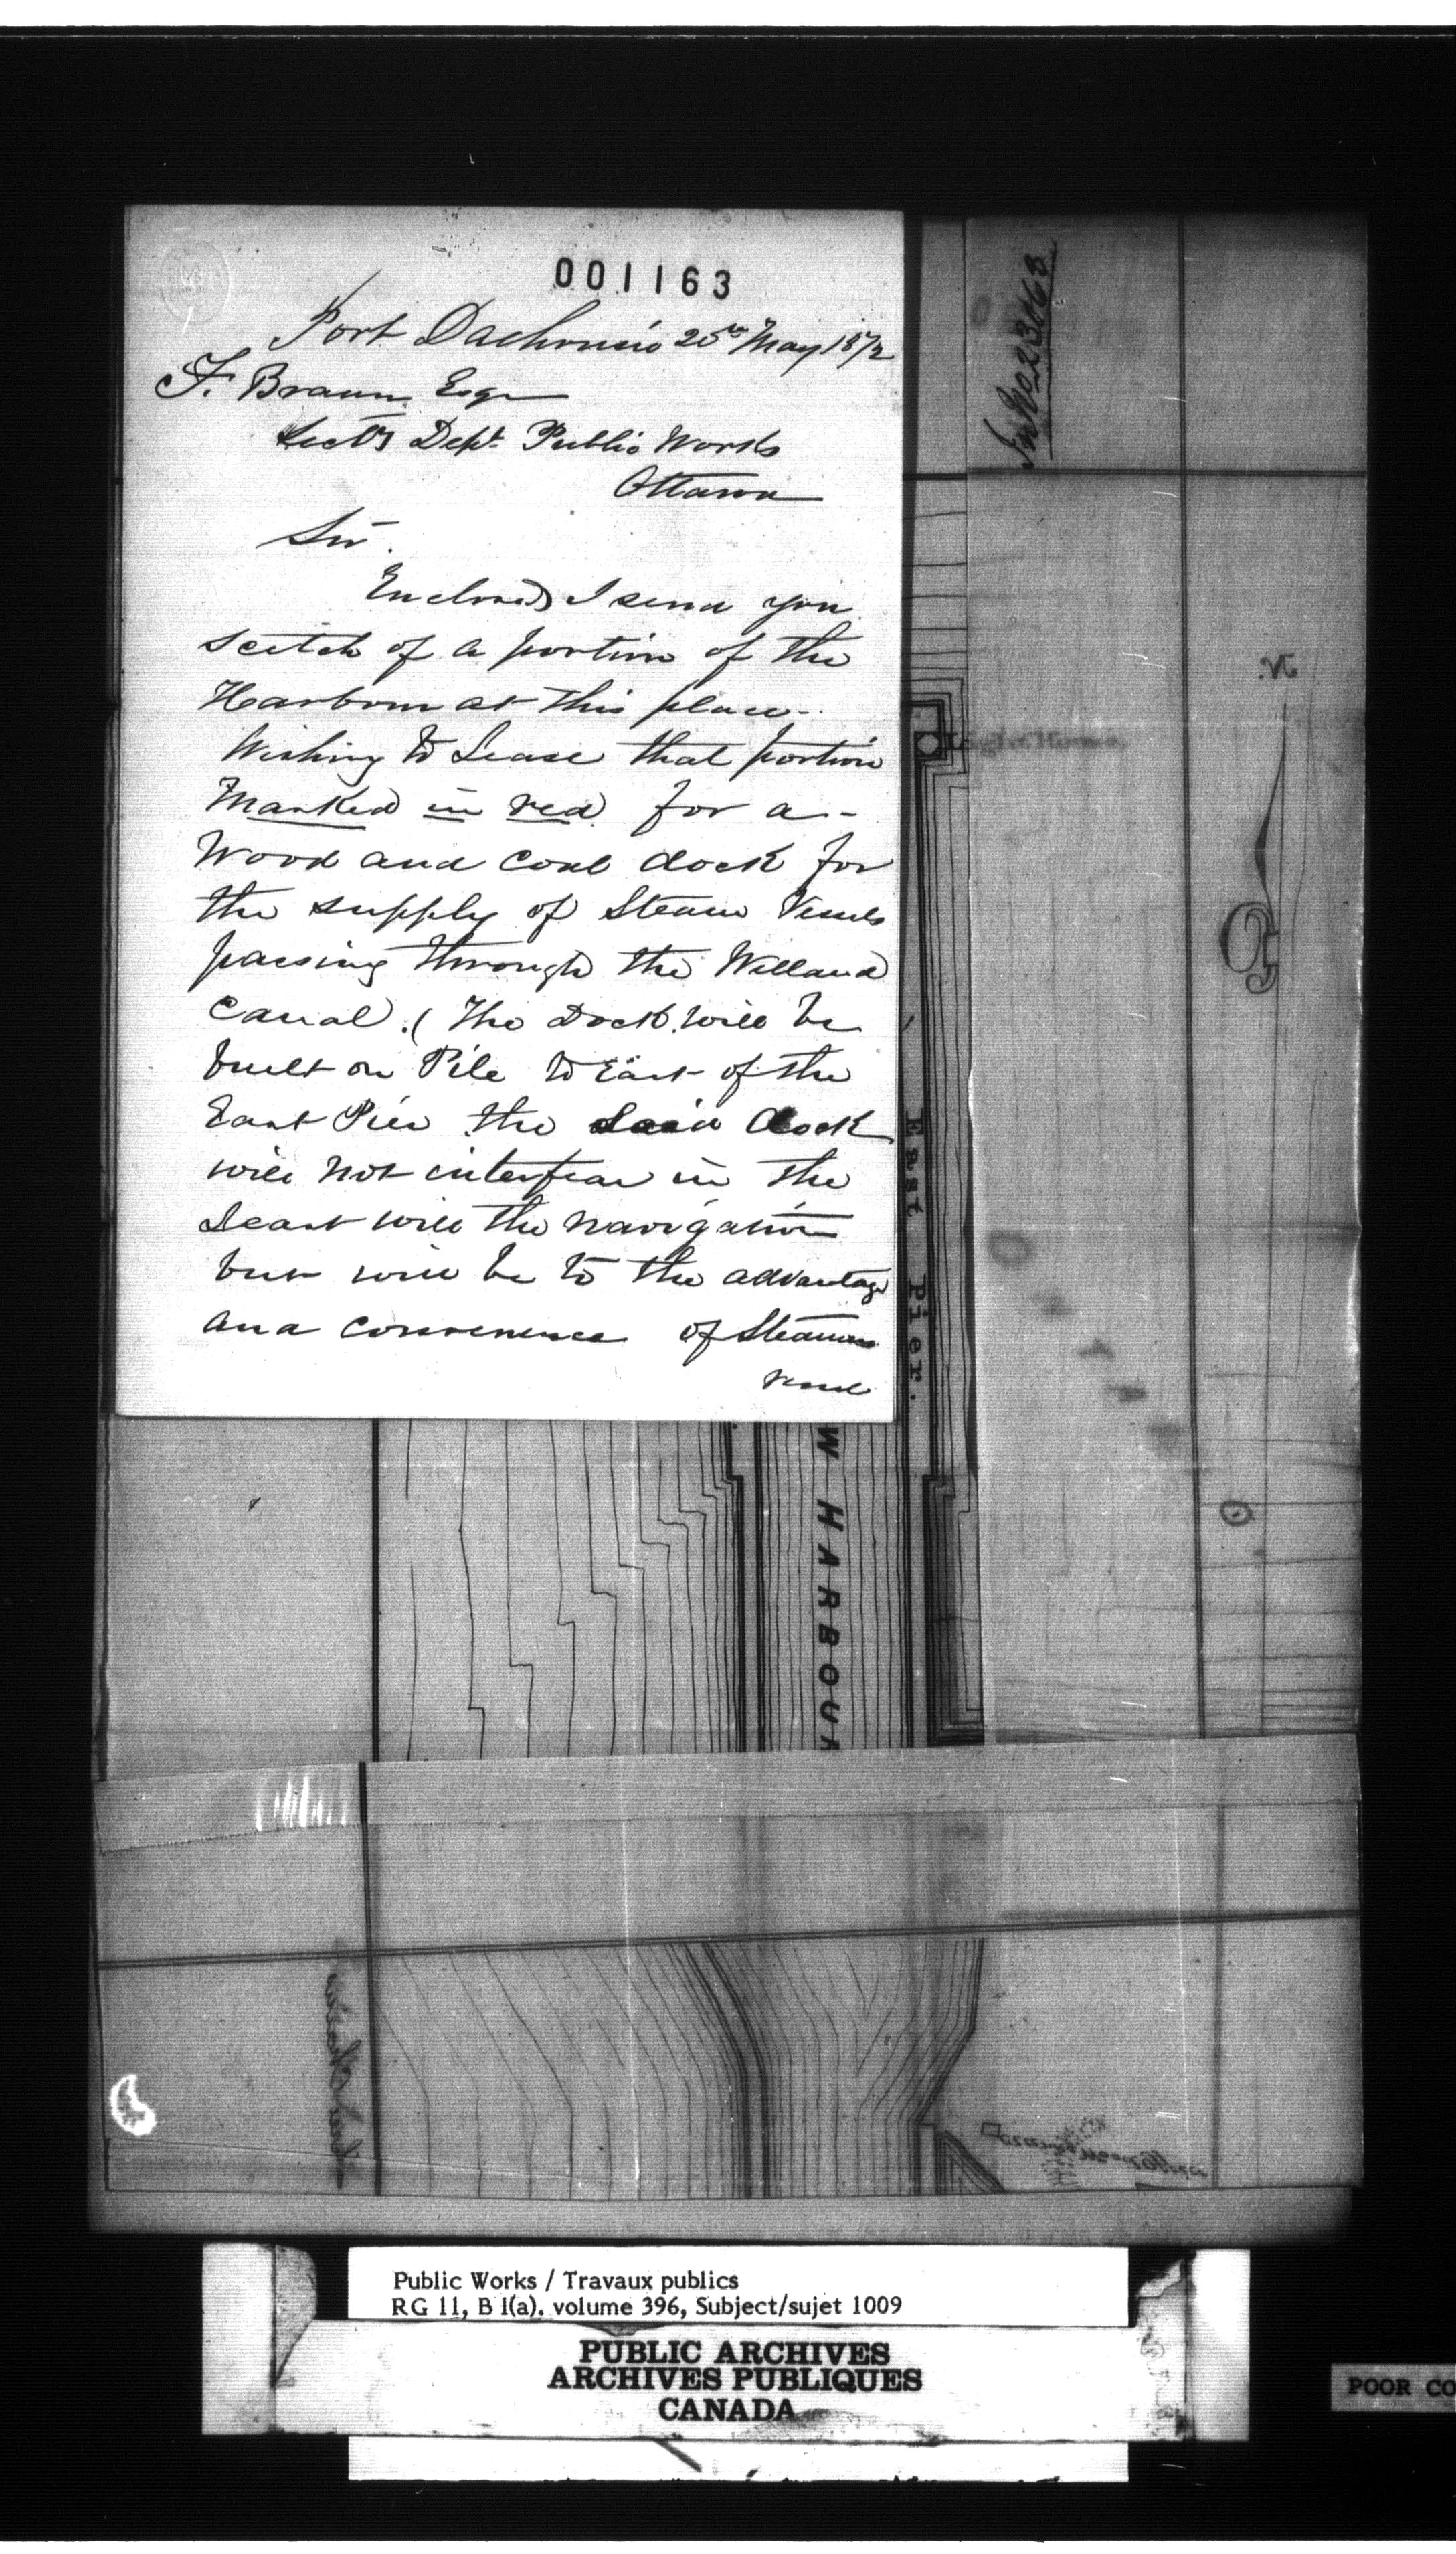 001163
Port Dalhousie 25th May 1872
F. Braun Esqr
Secty Dept Public Works
Ottawa
Sir.
Enclosed I send you
scetch of a portion of the
Harbour at this place.
Wishing to Lease that portion
Marked in red for a
Wood and Coal dock for
the supply of Steam Vessels
passing through the Welland
Canal. ( The Dock will be
built on Pile to East of the
East Pier the Said dock
will not interfear in the
Least with the navigation
but will be to the advantage
and convenience of Steam
vessel
No 23063
N.
Light House
East Pier.
W HARBOUR
Public Works / Travaux publics
RG 11, B 1(a), volume 396, Subject/sujet 1009
PUBLIC ARCHIVES
ARCHIVES PUBLIQUES
CANADA
POOR CO